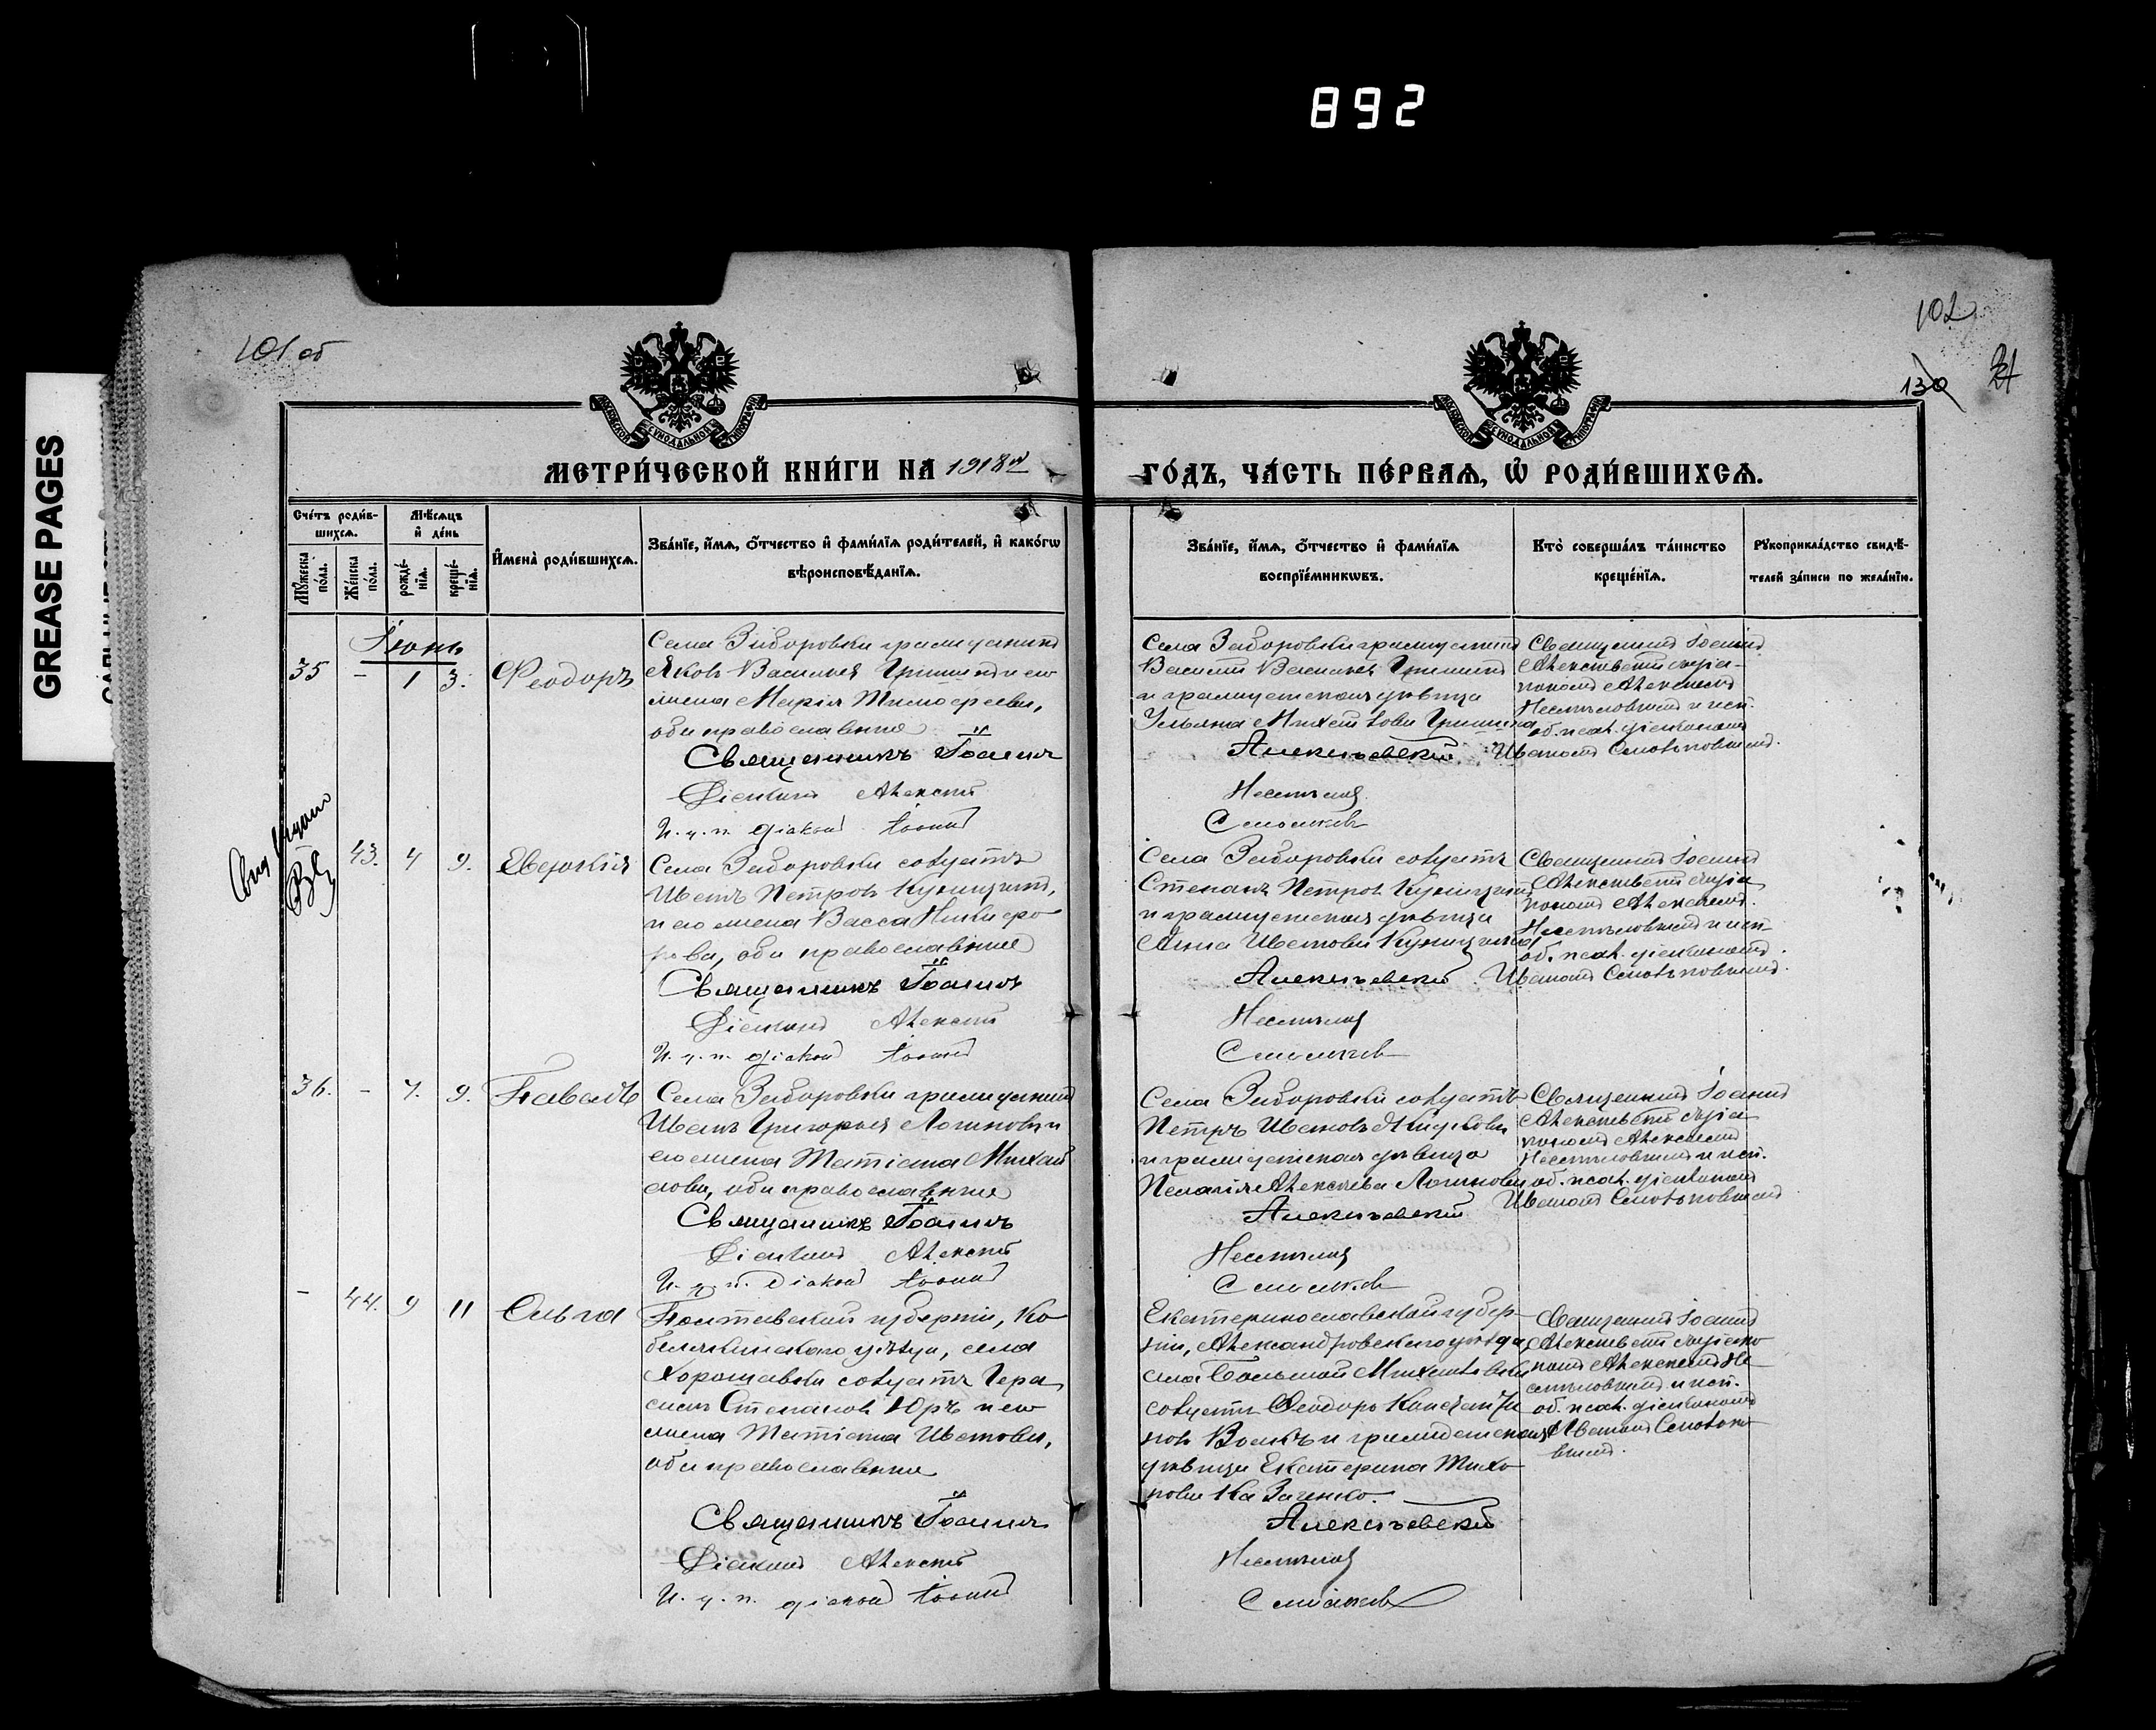 892
GREASE PAGES
101 об
102
130
МЕТРИ́ЧЕСКОЙ КНИ́ГИ НА 1918 й
ГО́ДЪ, ЧА́СТЬ ПЕ́РВАѦ, Ѿ РОДИ́ВШИХСѦ.
Сче́тъ роди́в-
шихсѧ.
Мѣ́сѧцъ
и҆ де́нь
Мꙋ́жеска по́ла.
Же́нска по́ла.
рожде́-
нїѧ.
креще́-
нїѧ.
И҆мена̀ роди́вшихсѧ.
Зва́нїе, и҆́мѧ, ѻ҆́тчество и҆ фами́лїѧ роди́телей, и҆ како́гѡ
вѣроисповѣ́данїѧ.
Зва́нїе, и҆́мѧ, ѻ҆́тчество и҆ фами́лїѧ
воспрїе́мникѡвъ.
Кто̀ соверша́лъ та́инство
креще́нїѧ.
Рꙋкоприкла́дство свидѣ́-
телей за́писи по жела́нїю.
Іюнь
35 - 1 3. Ѳеодоръ
Села Заборовки гражданинъ
Яковъ Васильевъ Гришинъ и его
жена Марія Тимофеева,
оба православные
Священникъ Іоаннъ
Діаконъ Алексѣй
И. д. п. діаконъ Іоаннъ
Села Заборовки гражданинъ
Василій Васильевъ Гришинъ
и гражданская дѣвица
Ульяна Михайлова Гришина
Алексѣевскій
Несмѣловъ
Смольковъ
Священникъ Іоаннъ
Алексѣевскій съ діа-
кономъ Алексѣемъ
Несмѣловымъ и исп.
об. псал. діакономъ
Іваномъ Смольковымъ.
43. 4 9. Евдокія
Села Заборовки солдатъ
Иванъ Петровъ Куницынъ,
и его жена Васса Никифо-
рова, оба православные
Священникъ Іоаннъ
Діаконъ Алексѣй
И. д. п. діаконъ Іоаннъ
Села Заборовки солдатъ
Степанъ Петровъ Куницынъ
и гражданская дѣвица
Анна Иванова Куницына
Алексѣевскій
Несмѣловъ
Смольковъ
Священникъ Іоаннъ
Алексѣевскій съ діа-
кономъ Алексѣемъ
Несмѣловымъ и исп.
об. псал. діакономъ
Иваномъ Смольковымъ.
36. - 7. 9. Павелъ
Села Заборовки гражданинъ
Иванъ Григорьевъ Логиновъ и
его жена Татіана Михай
лова, оба православные
Священникъ Іоаннъ
Діаконъ Алексѣй
И. д. п. Діаконъ Іоаннъ
Села Заборовки солдатъ
Петръ Ивановъ
и гражданская дѣвица
Пелагія Алексѣева Логинова
Алексѣевскій
Несмѣловъ
Смольковъ
Священникъ Іоаннъ
Алексѣевскій съ діа-
кономъ Алексѣемъ
Несмѣловымъ и исп.
об. псал. діакономъ
Иваномъ Смольковымъ
- 44. 9 11 Ольга
Полтавской губерніи, Ко-
белякскаго уѣзда, села
солдатъ Гера
симъ Степановъ Юръ и его
жена Татіана Иванова,
оба православные
Священникъ Іоаннъ
Діаконъ Алексѣй
И. д. п. діаконъ Іоаннъ
Екатеринославской губер-
ніи, Александровскаго уѣзда,
села Большой Михайловки
солдатъ Ѳеодоръ Константи
новъ Волкъ и гражданская
дѣвица Екатерина Тихо
нова Казаченко.
Алексѣевскій
Несмѣловъ
Смольковъ
Священникъ Іоаннъ
Алексѣевскій съ діако-
номъ Алексѣемъ Не-
смѣловымъ и исп.
об. псал. діакономъ
Иваномъ Смолько-
вымъ.